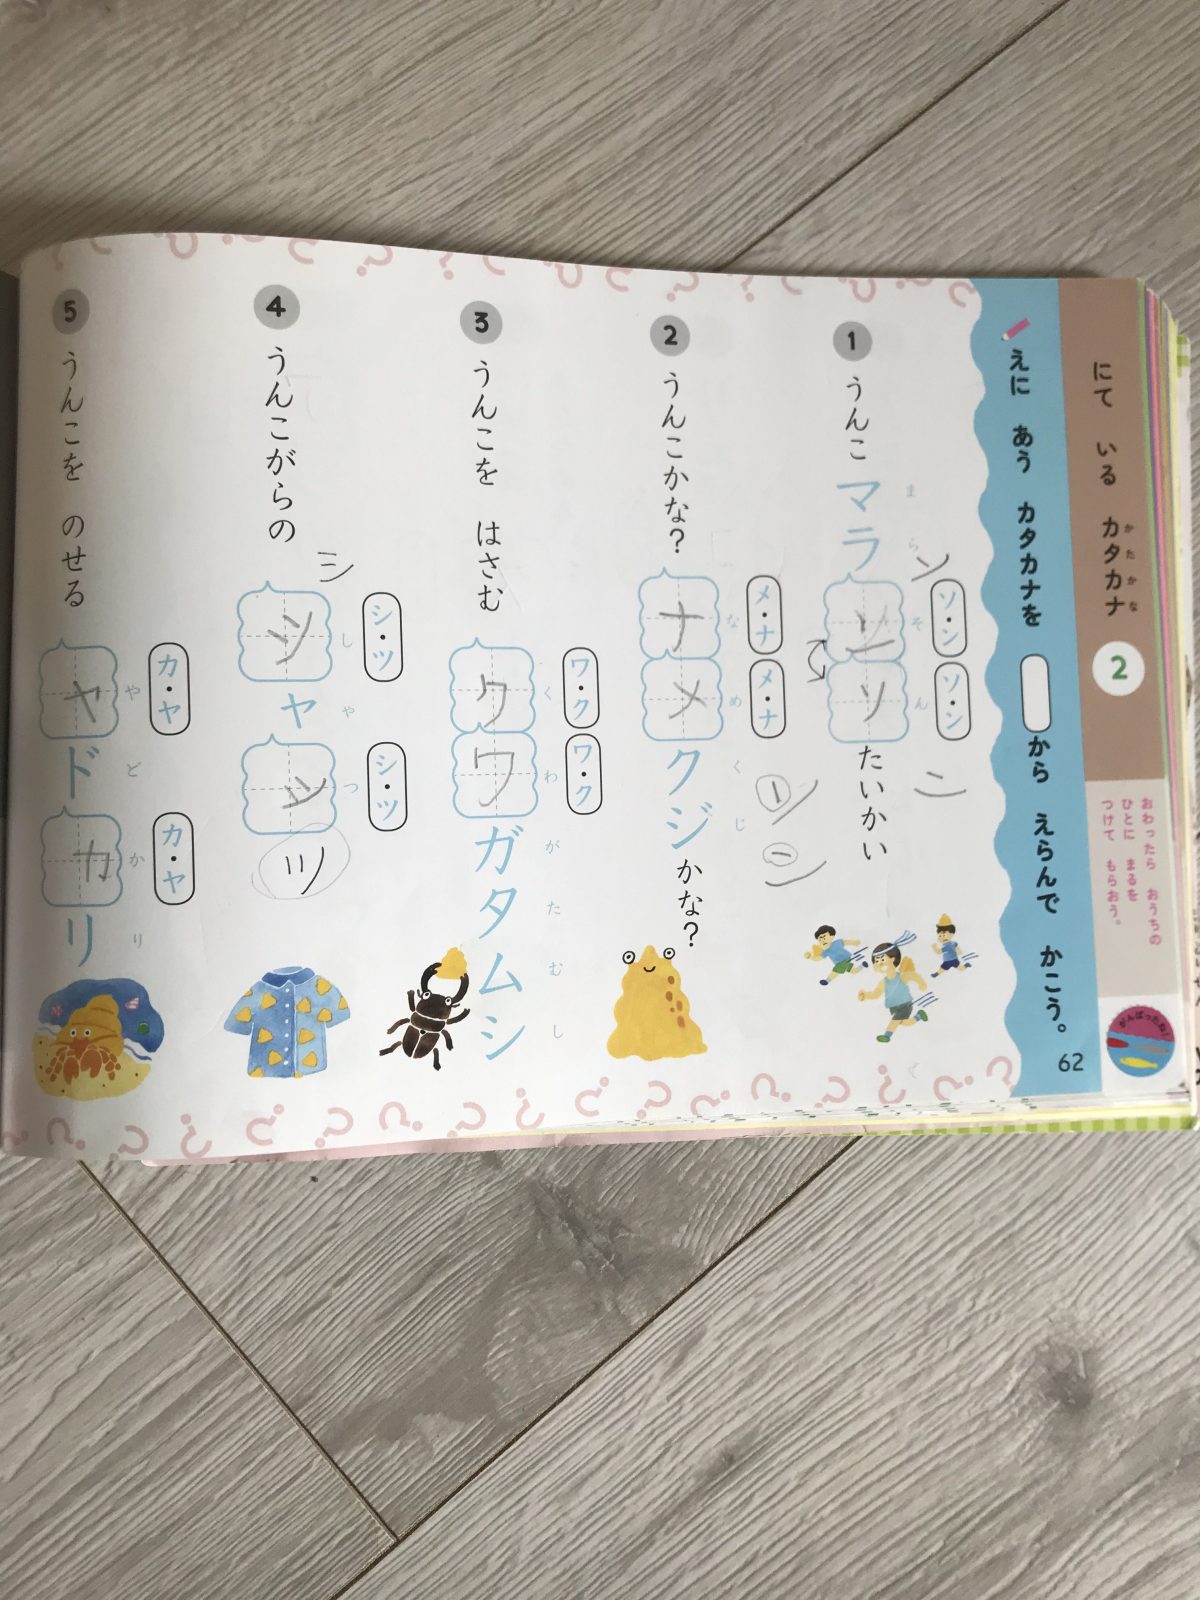 にて いる カタカナ 2
かたかな
おわったら おうちの
ひとに まるを
つけて もらおう。
がんばったね!
えに あう カタカナを から えらんで かこう。
62
1 うんこ マラソンたいかい
まら そ ん
ソ・ン
ソ・ン
ン
ソ
2 うんこかな? ナメクジかな?
な め く じ
メ・ナ
メ・ナ
3 うんこを はさむ クワガタムシ
く わ が た む し
ワ・ク
ワ・ク
4 うんこがらの シャツ
し ゃ つ
シ・ツ
シ・ツ
シ
ツ
5 うんこを のせる ヤドカリ
や ど か り
カ・ヤ
カ・ヤ